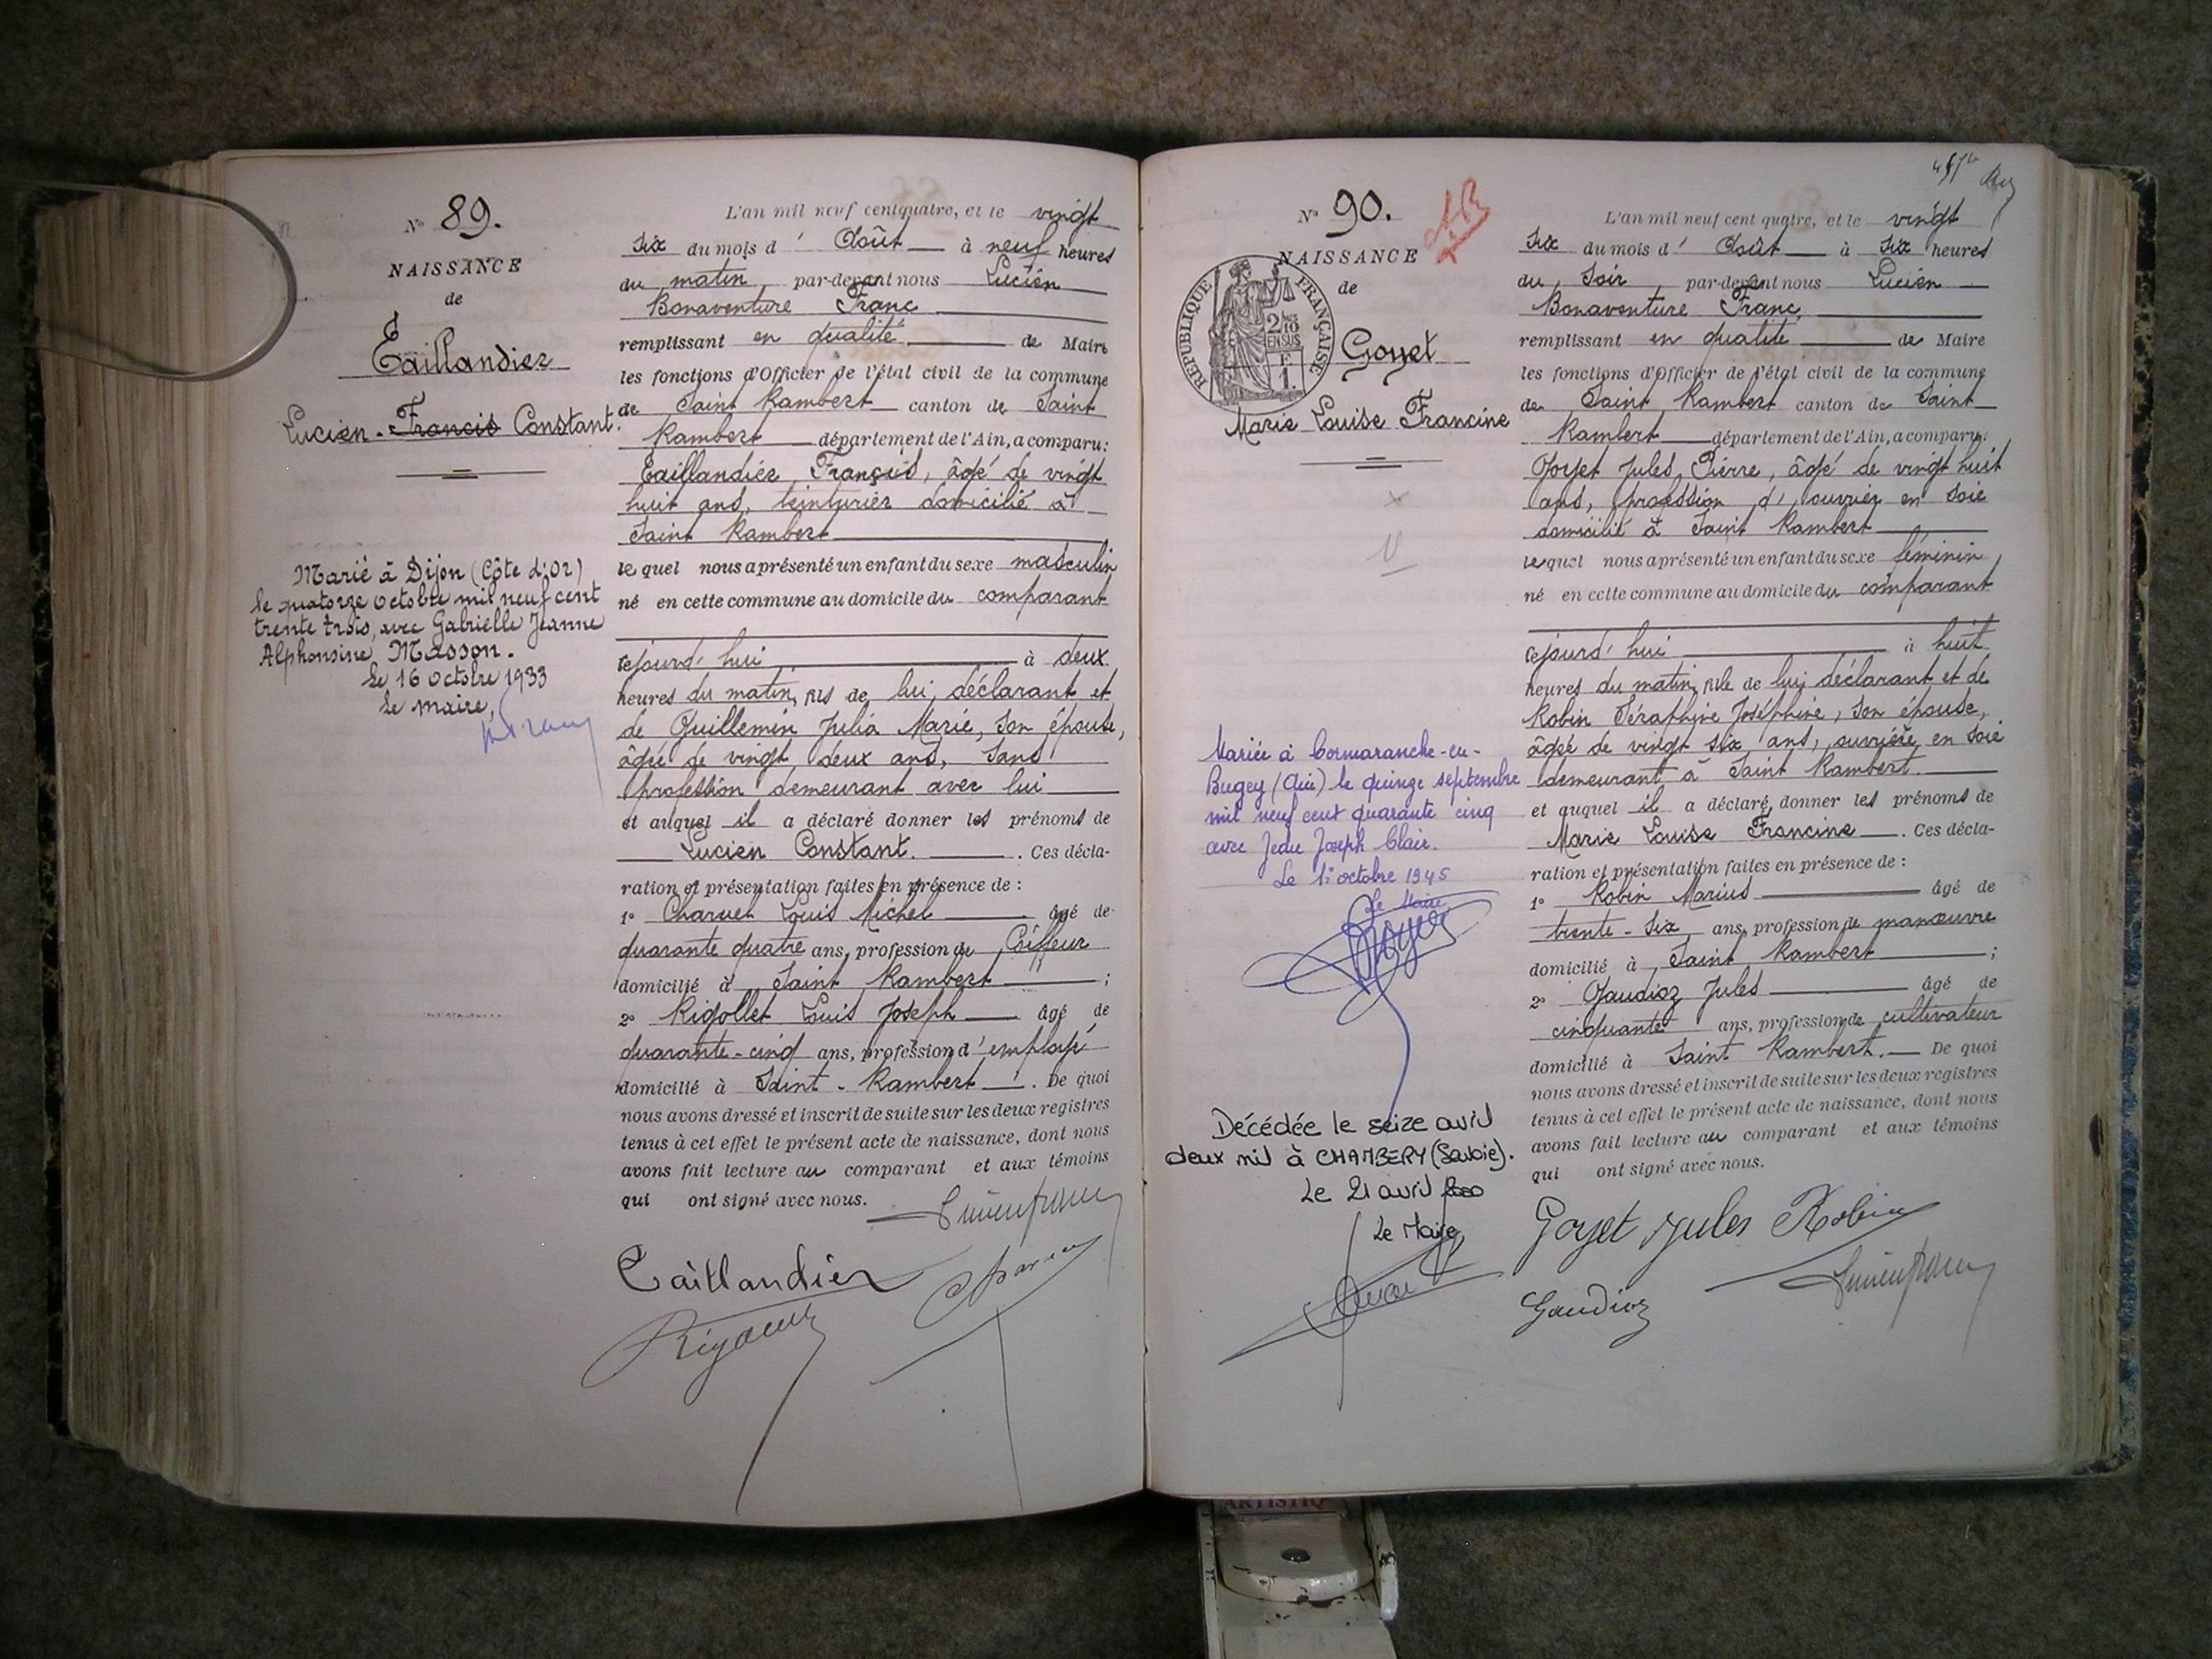 N° 89.
NAISSANCE
de
Taillandier
Lucien - Francis Constant.
Marié à Dijon (Côte d'Or)
le quatorze octobre mil neuf cent
trente trois, avec Gabrielle Jeanne
Alphonsine Masson.
Le 16 octobre 1933
Le maire,
L'an mil neuf cent quatre, et le vingt
six du mois d' Août à neuf heures
du matin, par-devant nous Lucien
Bonaventure Franc
remplissant en qualité de Maire
les fonctions d'Officier de l'état civil de la commune
de Saint Rambert canton de Saint
Rambert département de l'Ain, a comparu:
Taillandier François, âgé de vingt
huit ans, teinturier domicilié à
Saint Rambert
lequel nous a présenté un enfant du sexe masculin
né en cette commune au domicile du comparant
cejourd'hui à deux
heures du matin, fils de lui, déclarant et
de Guillemin Julia Marie, son épouse,
âgée de vingt deux ans, sans
profession demeurant avec lui
et auquel il a déclaré donner les prénoms de
Lucien Constant. . Ces décla-
ration et présentation faites en présence de :
1° Charvet Louis Michel âgé de
quarante quatre ans, profession de Coiffeur
domicilié à Saint Rambert ;
2° Rigollet Louis Joseph âgé de
quarante-cinq ans, profession d'employé
domicilié à Saint-Rambert . De quoi
nous avons dressé et inscrit de suite sur les deux registres
tenus à cet effet le présent acte de naissance, dont nous
avons fait lecture au comparant et aux témoins
qui ont signé avec nous.
Taillandier
N° 90.
NAISSANCE
de
RÉPUBLIQUE FRANÇAISE
2/10
EN SUS
F
1.
Goyet
Marie Louise Francine
Mariée à Cormaranche-en-
Bugey (Ain) le quinze septembre
mil neuf cent quarante cinq
avec Jean Joseph Clair.
Le 1er octobre 1945
Le Maire
Décédée le seize avril
deux mil à CHAMBERY (Savoie).
Le 21 avril 2000
Le Maire,
L'an mil neuf cent quatre, et le vingt
six du mois d' Août à six heures
du soir, par-devant nous Lucien
Bonaventure Franc,
remplissant en qualité de Maire
les fonctions d'Officier de l'état civil de la commune
de Saint Rambert canton de Saint
Rambert département de l'Ain, a comparu:
Goyet Jules Pierre, âgé de vingt huit
ans, profession d'ouvrier en soie
domicilié à Saint Rambert
lequel nous a présenté un enfant du sexe féminin,
né en cette commune au domicile du comparant
cejourd'hui à huit
heures du matin, fille de lui, déclarant et de
Robin Séraphine Joséphine, son épouse,
âgée de vingt six ans, ouvrière en soie
demeurant à Saint Rambert.
et auquel il a déclaré donner les prénoms de
Marie Louise Francine . Ces décla-
ration et présentation faites en présence de :
1° Robin Marius âgé de
trente-six ans, profession de manœuvre
domicilié à Saint Rambert ;
2° Gaudioz Jules âgé de
cinquante ans, profession de cultivateur
domicilié à Saint Rambert. De quoi
nous avons dressé et inscrit de suite sur les deux registres
tenus à cet effet le présent acte de naissance, dont nous
avons fait lecture au comparant et aux témoins
qui ont signé avec nous.
Goyet Jules Robin
Gaudioz